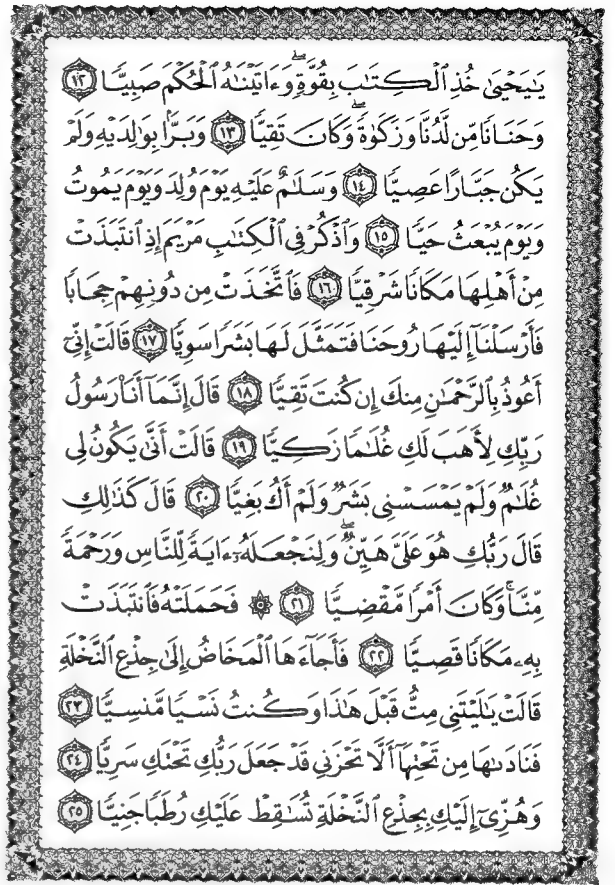 يَـٰيَحْيَىٰ خُذِ ٱلْكِتَـٰبَ بِقُوَّةٍۖ وَءَاتَيْنَـٰهُ ٱلْحُكْمَ صَبِيًّا ١٢
وَحَنَانًا مِّن لَّدُنَّا وَزَكَوٰةًۖ وَكَانَ تَقِيًّا ١٣ وَبَرًّۢا بِوَٰلِدَيْهِ وَلَمْ
يَكُن جَبَّارًا عَصِيًّا ١٤ وَسَلَـٰمٌ عَلَيْهِ يَوْمَ وُلِدَ وَيَوْمَ يَمُوتُ
وَيَوْمَ يُبْعَثُ حَيًّا ١٥ وَٱذْكُرْ فِى ٱلْكِتَـٰبِ مَرْيَمَ إِذِ ٱنتَبَذَتْ
مِنْ أَهْلِهَا مَكَانًا شَرْقِيًّا ١٦ فَٱتَّخَذَتْ مِن دُونِهِمْ حِجَابًا
فَأَرْسَلْنَآ إِلَيْهَا رُوحَنَا فَتَمَثَّلَ لَهَا بَشَرًا سَوِيًّا ١٧ قَالَتْ إِنِّىٓ
أَعُوذُ بِٱلرَّحْمَـٰنِ مِنكَ إِن كُنتَ تَقِيًّا ١٨ قَالَ إِنَّمَآ أَنَا۠ رَسُولُ
رَبِّكِ لِأَهَبَ لَكِ غُلَـٰمًا زَكِيًّا ١٩ قَالَتْ أَنَّىٰ يَكُونُ لِى
غُلَـٰمٌ وَلَمْ يَمْسَسْنِى بَشَرٌ وَلَمْ أَكُ بَغِيًّا ٢٠ قَالَ كَذَٰلِكِ
قَالَ رَبُّكِ هُوَ عَلَىَّ هَيِّنٌۖ وَلِنَجْعَلَهُۥٓ ءَايَةً لِّلنَّاسِ وَرَحْمَةً
مِّنَّاۚ وَكَانَ أَمْرًا مَّقْضِيًّا ٢١ ۞ فَحَمَلَتْهُ فَٱنتَبَذَتْ
بِهِۦ مَكَانًا قَصِيًّا ٢٢ فَأَجَآءَهَا ٱلْمَخَاضُ إِلَىٰ جِذْعِ ٱلنَّخْلَةِ
قَالَتْ يَـٰلَيْتَنِى مِتُّ قَبْلَ هَـٰذَا وَكُنتُ نَسْيًا مَّنسِيًّا ٢٣
فَنَادَىٰهَا مِن تَحْتِهَآ أَلَّا تَحْزَنِى قَدْ جَعَلَ رَبُّكِ تَحْتَكِ سَرِيًّا ٢٤
وَهُزِّىٓ إِلَيْكِ بِجِذْعِ ٱلنَّخْلَةِ تُسَـٰقِطْ عَلَيْكِ رُطَبًا جَنِيًّا ٢٥